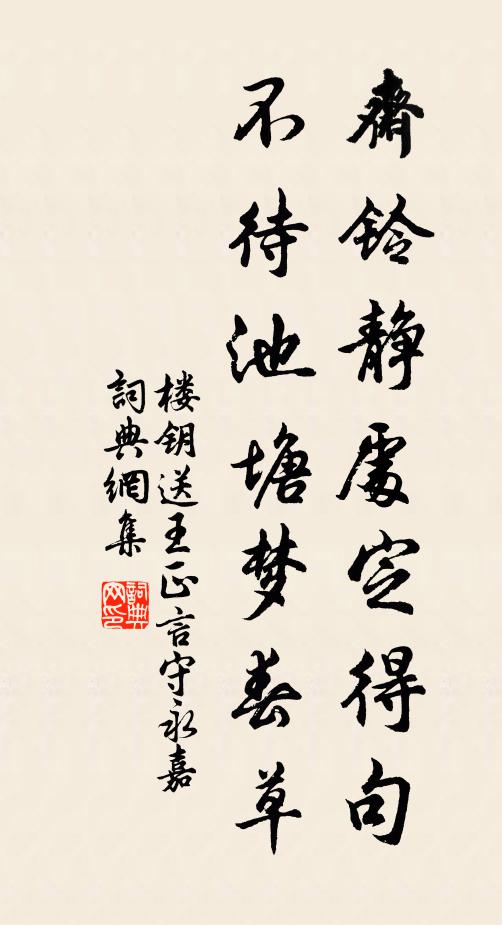 齋铃静處定得句
不待池塘梦春草
楼钥送王正言守永嘉
詞典網集
詞典网印